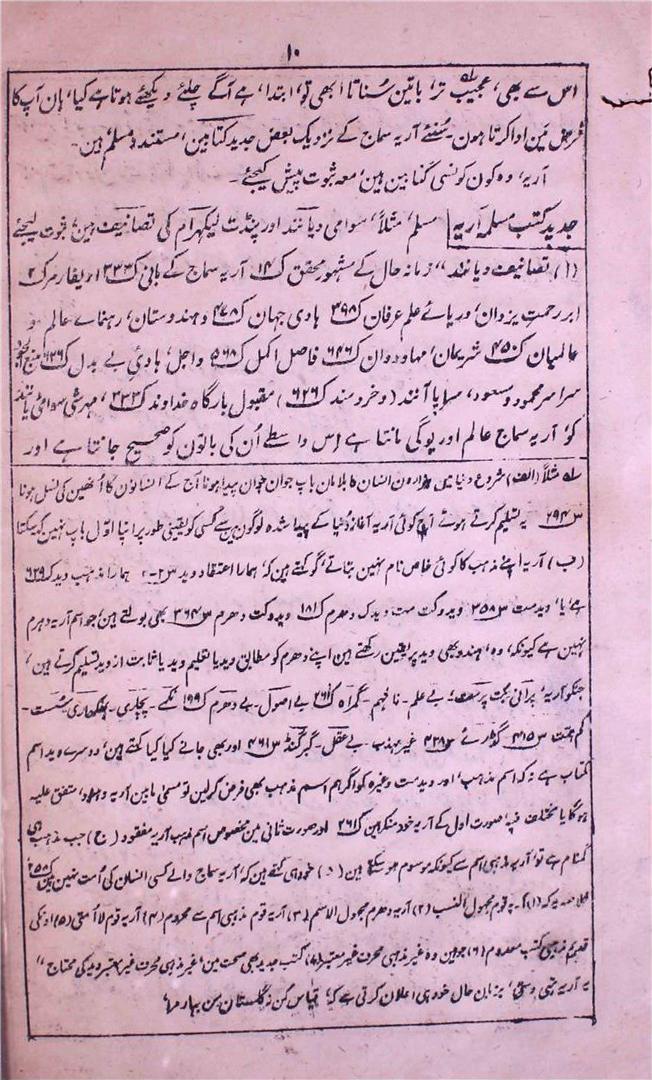 ۱۰
اس سے بھی، عجیب تر، باتین سُناتا ابھی تو، ابتدا، ہے آگے چلئے دیکھئے ہوتا ہے کیا، ہان آپ کا
فرض مَین ادا کرتا ہون۔ سُنئے آریہ سماج کے نزدیک بعض جدید کتابین، مستند و مسلم، ہین۔
آریہ، وہ کون کونسی کتابین ہین، معہ ثبوت پیش کیجئے۔
جدید کتب مسلمہ آریہ مسلم، مثلاً، سوامی دیانند اور پنڈت لیکھرام کی تصانیف ہین، ثبوت لیجئے
(۱) تصانیف دیانند" زمانہ حال کے مشہور محقق ک۱۴ آریہ سماج کے بانی ک۳۳۳ اور یفارمر ک۲
ابر رحمت یزدان، دریائے علم عرفان ک۴۹۸ ہادی جہان ک۴۷۸ و ہندوستان، رہنمائے عالم و
عالمیان ک۴۵۰ شریمان، مہاودوان ک۶۴۶ فاضل اکمل ک۵۶۸ واجل، ہادیٔ بے بدل ک۱۲۶
سراسر محمود و مسعود، سراپا آنند (و خردمند ک۶۲۶) مقبول بارگاہ خداوند ک۲۳۳، مہرشی سوامی دیانند
کو، آریہ سماج عالم اور یوگی مانتا ہے اس واسطے اُن کی باتون کو صحیح جانتا ہے اور
۱؎ مثلاً (الف) شروع دنیا میں ہزارون انسان کا بلا مان باپ جوان جوان پیدا ہونا آج کے انسانون کا اُنھین کی نسل ہونا
س۲۹۴ یہ تسلیم کرتے ہوئے آج کوئی آریہ آغاز دُنیا کے پیدا شدہ لوگون مین سے کسی کو یقینی طور پر اپنا اوّل باپ نہین کہہ سکتا
(ب) آریہ اپنے مذہب کا کوئی خاص نام نہین بتاتے، گو کہتے ہین کہ، ہمارا اعتقاد وید ہمارا مذہب وید ک۶۲۹
ہے، یا، ویدمت س۳۵۸ ویدوکت مت ویدک دھرم ک۱۸۱ ویدوکت دھرم س۳۶۴ بھی بولتے ہین، جو اسم آریہ دھرم
نہین ہے کیونکہ، وہ، ہندو بھی وید پر یقین رکھتے ہین اپنے دھرم کو مطابق وید یا تعلیم وید یا ثابت از وید تسلیم کرتے ہین،
جنکو آریہ، پرانی بُت پرست، بے علم۔ نافہم۔ گمراہ ک۲۶۱ بے اصول۔ بے دھرم ک۱۹۹ نکمے۔ پجاری۔
کم ہمت س۴۱۵ س۴۳۸ غیر مہذب۔ بے عقل۔ س۴۶۱ اور بھی جانے کیا کیا کہتے ہین، دوسرے وید اسم
کتاب ہے نہ کہ اسم مذہب، اور ویدمت وغیرہ کو اگر ہم اسم مذہب بھی فرض کر لین تو مسمی مابین آریہ و ہنود، متفق علیہ
ہوگا یا مختلف فیہ، صورت اول کے آریہ خود منکر ہین ک۲۶۱ اور صورت ثانی مین مخصوص اسم مذہب آریہ مفقود (ج) جب مذہب ہی
گمنام ہے تو، آریہ مذہبی اسم سے کیونکر موسوم ہو سکتے ہین (د) خود ہی کہتے ہین کہ آریہ سماج والے کسی انسان کی اُمت نہین ہین
خلاصہ یہ کہ (۱) آریہ قوم مجہول النسب (۲) آریہ دھرم مجہول الاسم (۳) آریہ قوم مذہبی اسم سے محروم (۴) آریہ قوم لا اُمتی (۵) اونکی
قدیم مذہبی کتب معدوم (۶) جو ہین وہ غیر مذہبی محرف غیر معتبر (۷) کتب جدید بھی صحت مین، غیر مذہبی محرف غیر معتبر وید کی محتاج"
یہ آریہ بزبان حال خود ہی اعلان کرتی ہے کہ، قیاس کن ز گلستان من بہار مرا،